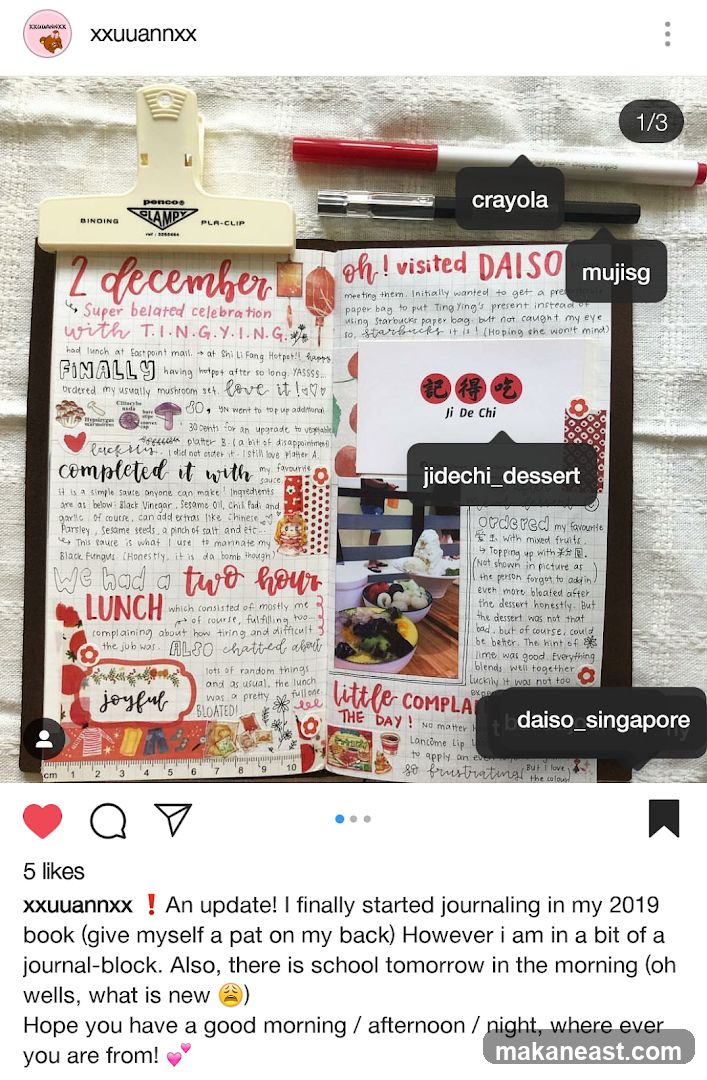 xxuuannxx
xxuuannxx
1/3
crayola
mujisg
penco®
BINDING CLAMPY PLA-CLIP
2 december
↳ Super belated celebration
with T.I.N.G.Y.I.N.G.
had lunch at Eastpoint mall. → at Shi Li Fang Hotpot!! happy
FINALLY having hotpot after so long. YASSSS...
ordered my usually mushroom set. love it!♡♡
Hypsizygus marmoreus
Clitocybe nuda
bare stipe convex cap
so, YN went to top up additional
30 cents for an upgrade to vegetable
platter B. (a bit of disappointment)
luckily I did not order it. I still love Platter A.
completed it with my favourite
sauce
It is a simple sauce anyone can make! Ingredients
are as below: Black Vinegar, Sesame Oil, Chili Padi and
garlic. Of course, can add extras like Chinese
Parsley, Sesame seeds, a pinch of salt and etc...
↳ This sauce is what I use to marinate my
Black Fungus (Honestly, it is da bomb though)
We had a two hour
LUNCH which consisted of mostly me
↱ of course, fulfilling too...
complaining about how tiring and difficult
the job was. ALSO chatted about
lots of random things
and as usual, the lunch
was a pretty full one.
BLOATED!
joyful
cm 1 2 3 4 5 6 7 8 9 10
oh! visited DAISO
meeting them. Initially wanted to get a presentable
paper bag to put TingYing's present instead of
using Starbucks paper bag. but not caught my eye
so, starbucks it is! (Hoping she won't mind)
記得吃
Ji De Chi
jidechi_dessert
ordered my favourite
with mixed fruits.
↳ Topping up with
(Not shown in picture as
the person forgot to add in)
even more bloated after
the dessert honestly. But
the dessert was not that
bad, but of course, could
be better. The hint of
lime was good. Everything
blends well together.
Luckily it was not too
little COMPLAI
THE DAY! No matter h
Lancôme Lip
to apply an even
so frustrating! But I love
the colour
daiso_singapore
5 likes
xxuuannxx ❗ An update! I finally started journaling in my 2019
book (give myself a pat on my back) However i am in a bit of a
journal-block. Also, there is school tomorrow in the morning (oh
wells, what is new 😩)
Hope you have a good morning / afternoon / night, where ever
you are from! 💕
makaneast.com